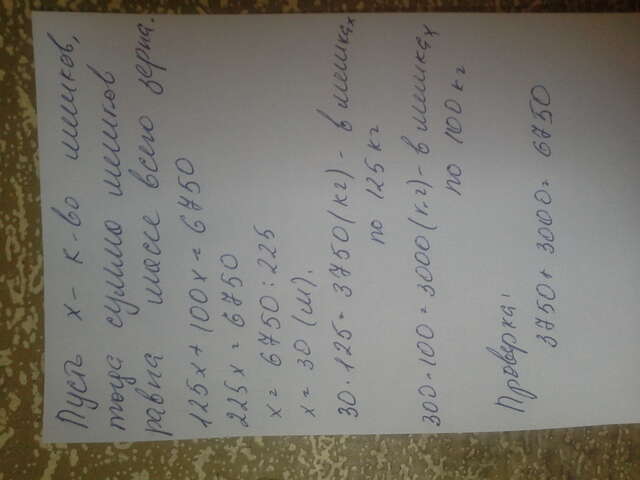 Пусть х - к-во мешков,
тогда сумма мешков
равна массе всего зерна.
125х + 100х = 6750
225х = 6750
х = 6750 : 225
х = 30 (м).
30 · 125 = 3750 (кг) - в мешках
по 125 кг
300 · 100 = 3000 (кг) - в мешках
по 100 кг
Проверка:
3750 + 3000 = 6750